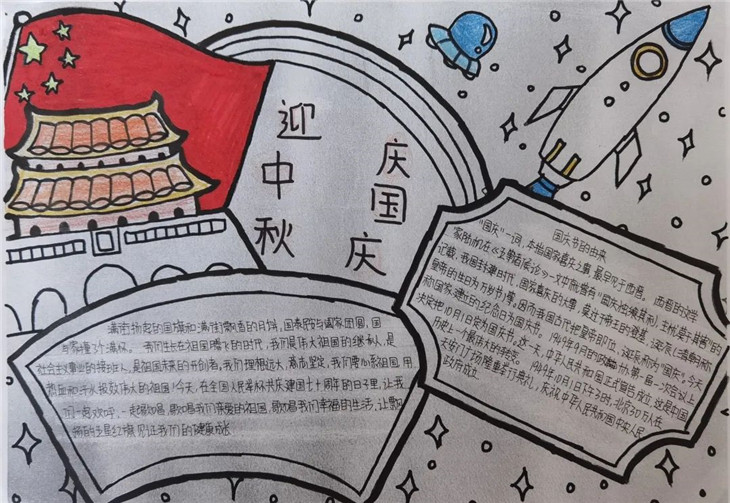 迎中秋
庆国庆
满街扬起的国旗和满街飘香的月饼,国泰照与阖家团圆,国
与家撞了个满怀。我们生在祖国腾飞的时代,我们是伟大祖国的继承人,是
社会主义事业的接班人,是祖国未来的开创者,我们理想远大,意志坚定,我们要心系祖国,用
热血和汗水报效伟大的祖国!今天,在全国人民举杯共庆建国七十周年的日子里,让我
们一起欢呼,一起歌唱,歌唱我们亲爱的祖国,歌唱我们幸福的生活,让
的五星红旗见证我们的健康成长
国庆节的由来
"国庆"一词,本指国家喜庆之事,最早见于西晋。西晋的文学
家陆机在《五等诸侯论》一文中就曾有"国庆独飨其利,主忧莫与其害"的
记载,我国封建时代,国家喜庆的大事,莫过于帝王的登基、诞辰(清朝称
皇帝的生日为万岁节)等,因而我国古代把皇帝即位、诞辰称为"国庆"。今天
称国家建立的纪念日为国庆节。1949年9月的政协 第一届一次会议上
决定把10月1日定为国庆节。这一天,中华人民共和国正式宣告成立,这是中国
历史上一个最伟大的转变。1949年10月1日下午3时,北京30万人在
天安门广场隆重举行典礼,庆祝中华人民共和国中央人民
政府成立.